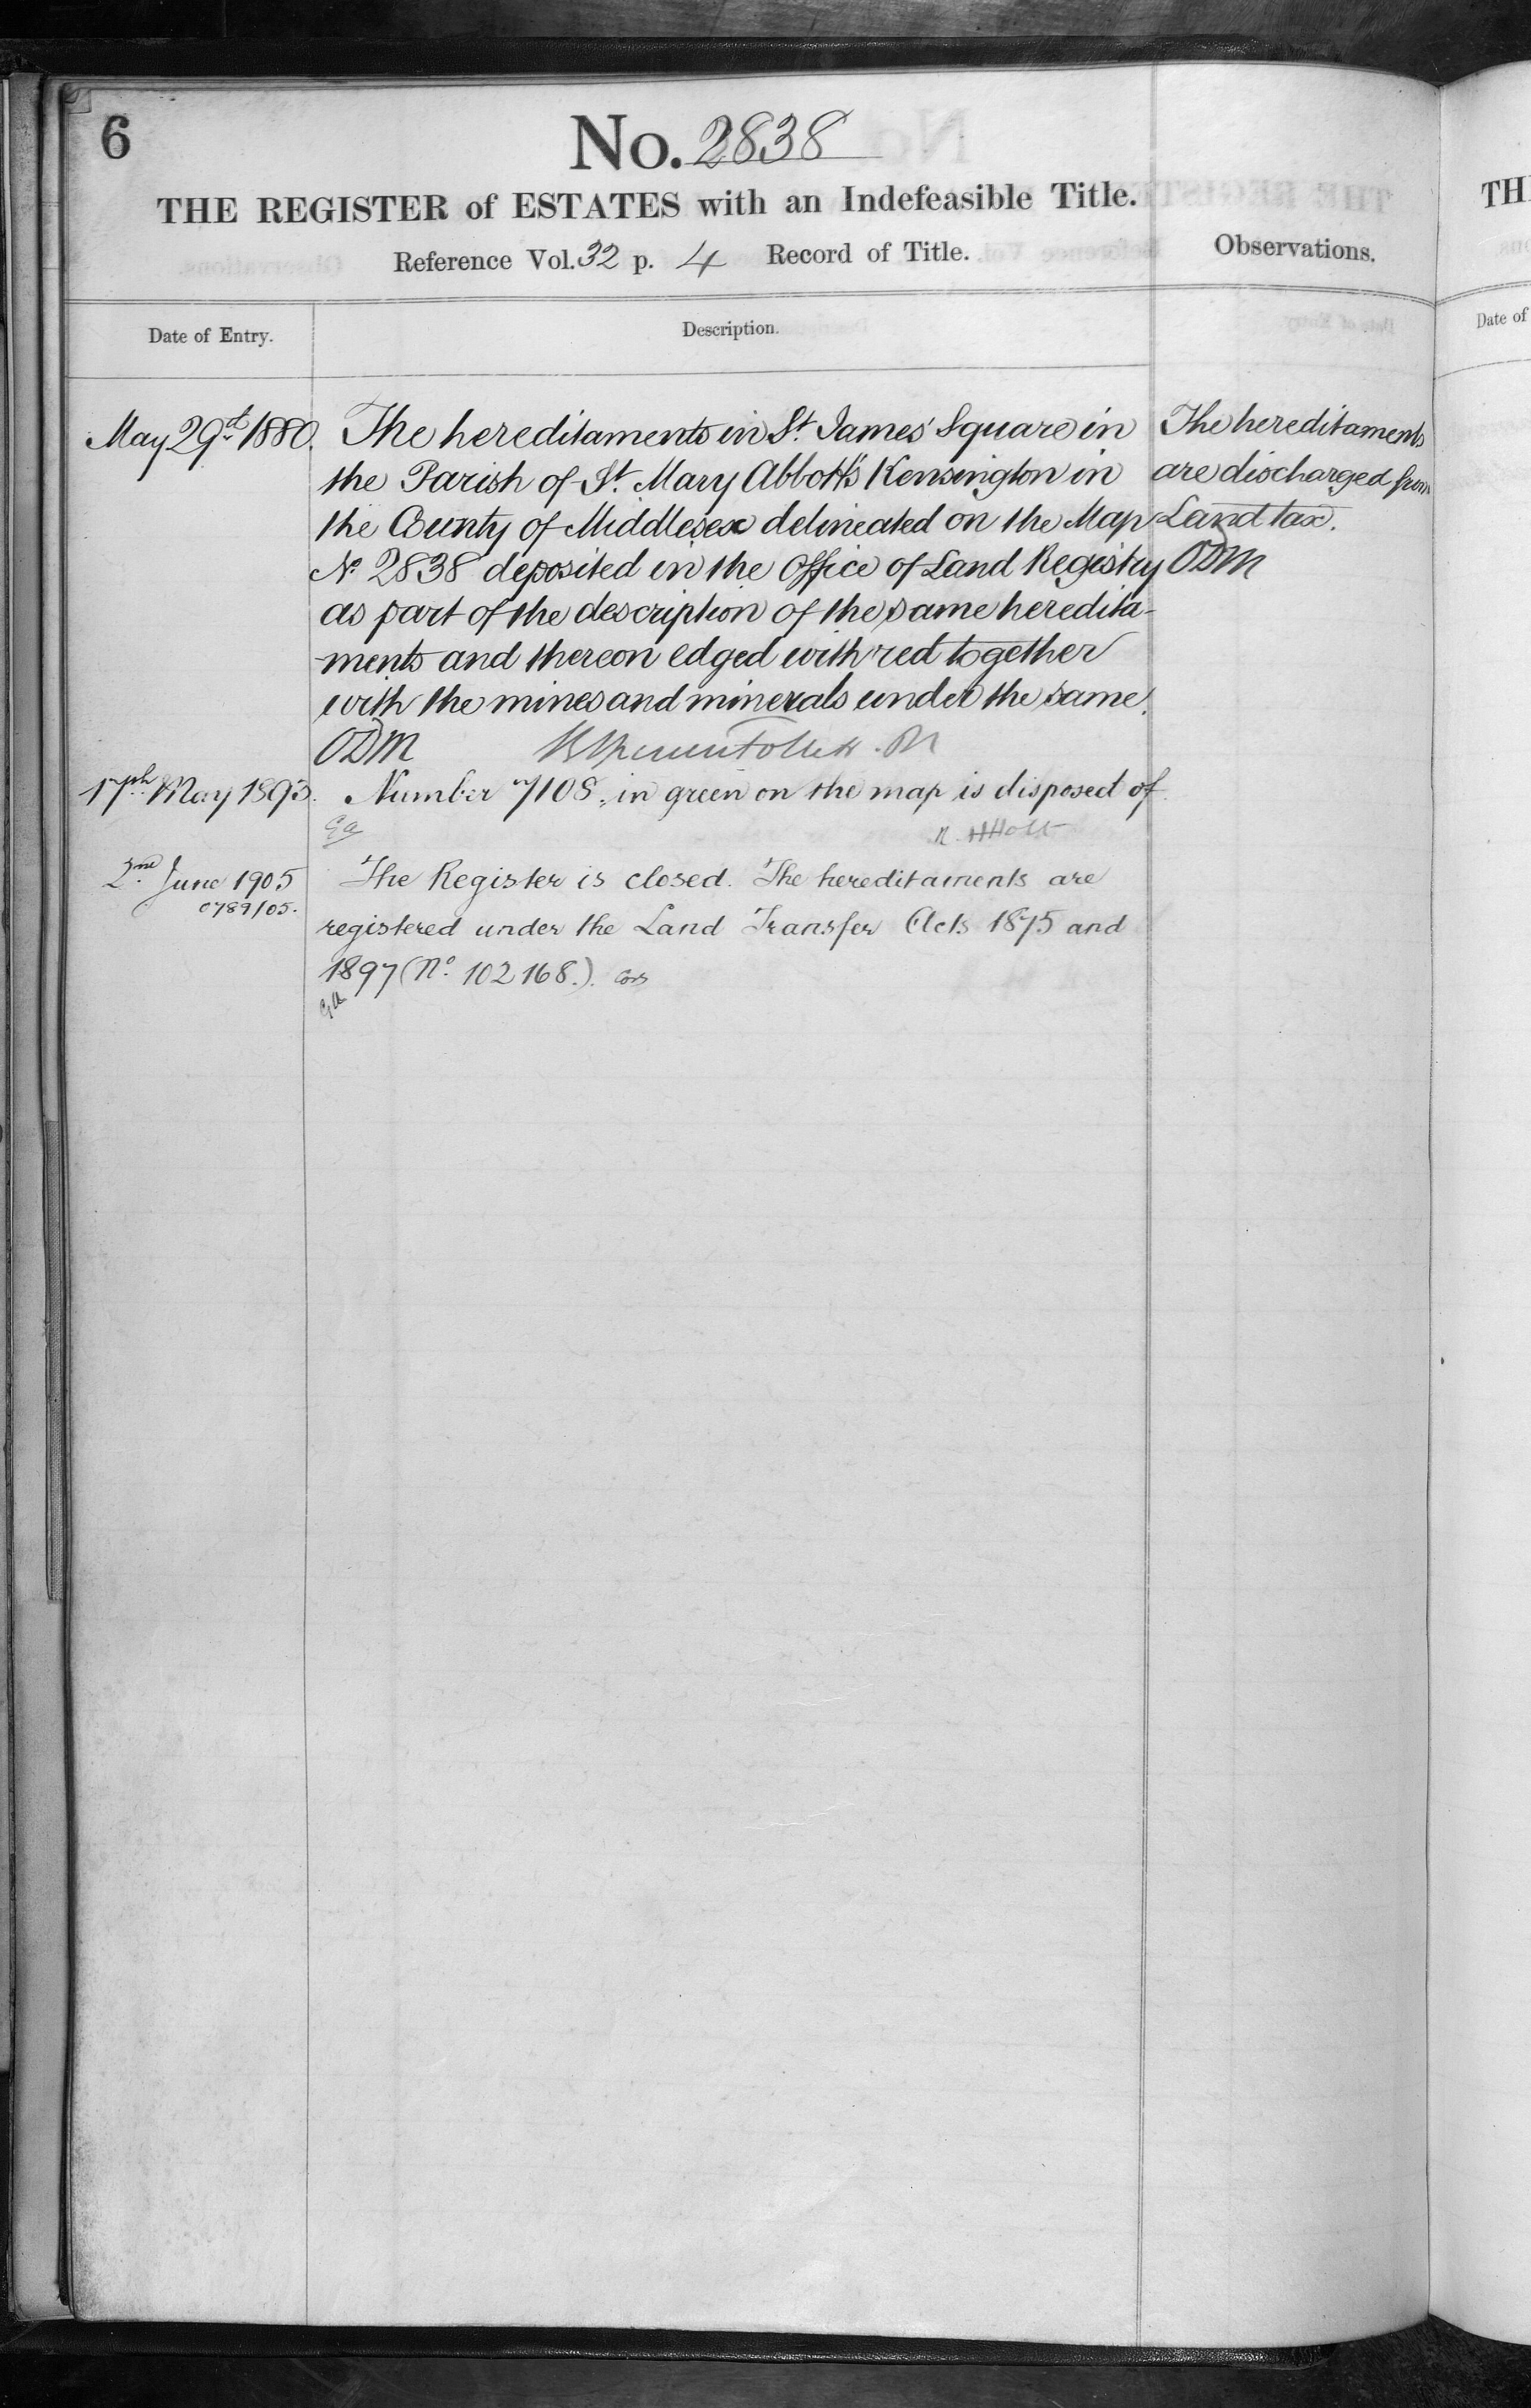 6
No. 2838
THE REGISTER of ESTATES with an Indefeasible Title.
Reference Vol. 32 p. 4 Record of Title.
Observations.
Date of Entry.
Description.
May 29th 1880.
The hereditaments in St. James' Square in
the Parish of St. Mary Abbott's Kensington in
the County of Middlesex delineated on the Map
No. 2838 deposited in the Office of Land Registry
as part of the description of the same heredita-
ments and thereon edged with red together
with the mines and minerals under the same.
ODM
The hereditaments
are discharged from
Land tax.
ODM
17th May 1893.
Number 7108 in green on the map is disposed of.
Holt
2nd June 1905
0789/05.
The Register is closed. The hereditaments are
registered under the Land Transfer Acts 1875 and
1897 (No. 102168.).
TH
Date of